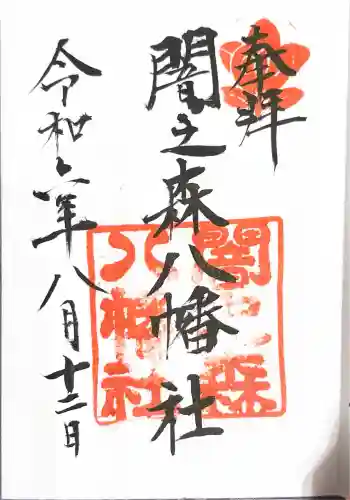 奉拝
闇之森八幡社
闇之森
八幡社
令和六年八月十二日